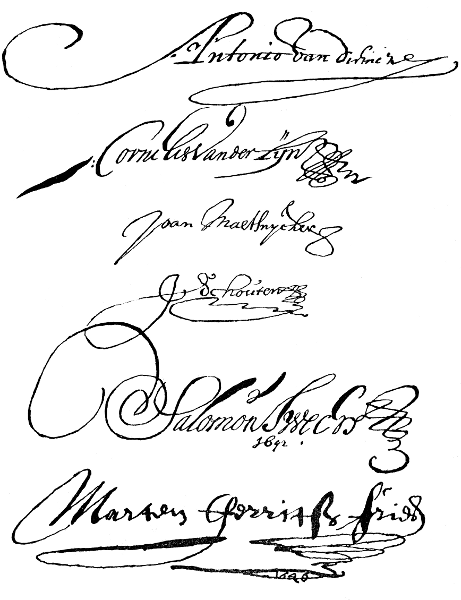 Antonio van diemen
Cornelis van der Lijn
Joan Maetsuycker
J Schouten
Salomon Sweers
Marten Gerritsz Fries